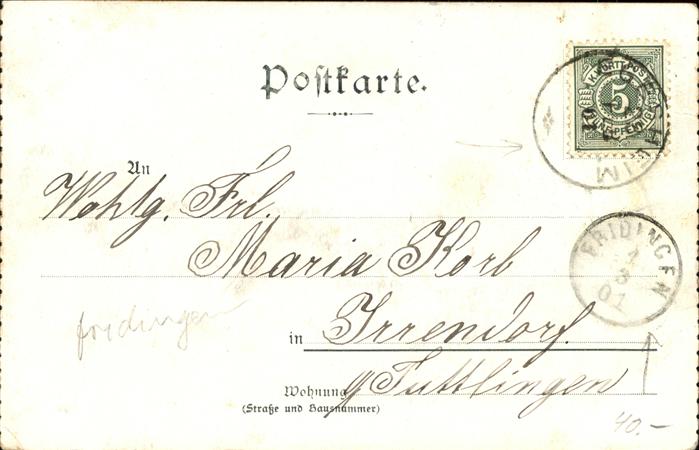 Postkarte.
K.WÜRTT.POST
5
FÜNF PFENNIG
An
Wohlg. Frl.
Maria Korb
FRIDINGEN
1
3
01
fridingen
in Irrendorf.
Wohnung
(Straße und Hausnummer)
Tuttlingen
40.-